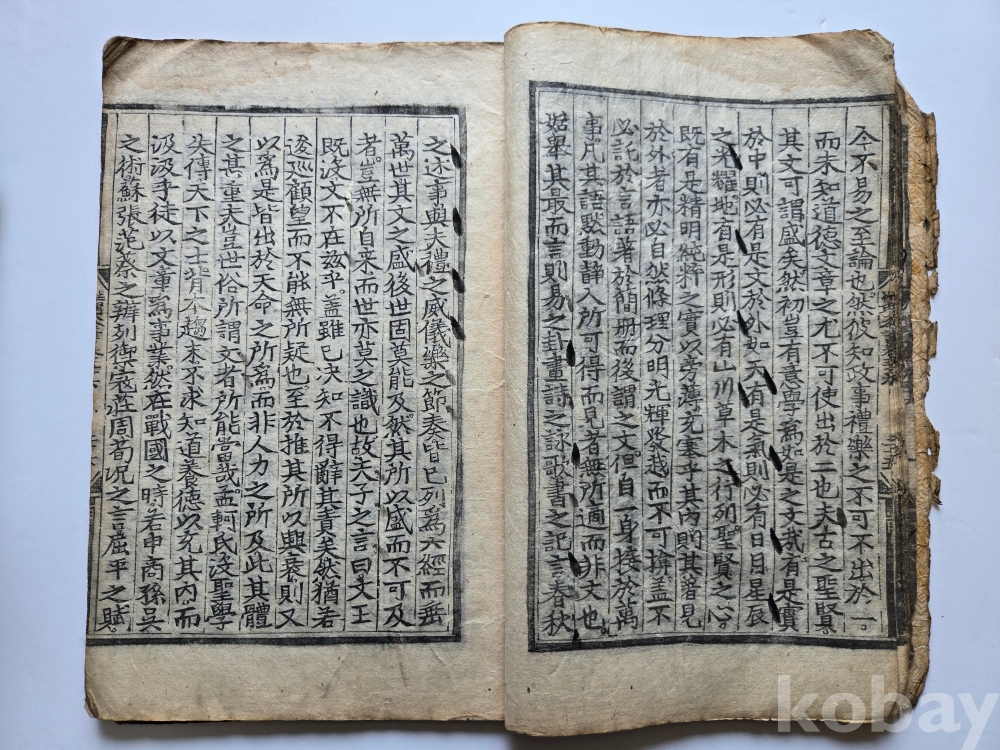 今不易之至論也然彼知政事禮樂之不可不出於一
而未知道德文章之尤不可使出於二也夫古之聖賢
其文可謂盛矣然初豈有意學爲如是之文哉有是實
於中則必有是文於外如天有是氣則必有日月星辰
之光耀地有是形則必有山川草木之行列聖賢之心
既有是精明純粹之實以旁薄充塞乎其內則其著見
於外者亦必自然條理分明光輝發越而不可揜盖不
必託於言語著於簡册而後謂之文但自一身接於萬
事凡其語默動靜人所可得而見者無所適而非文也
姑舉其最而言則易之卦畫詩之詠歌書之記言春秋
之述事與夫禮之威儀樂之節奏皆已列爲六經而垂
萬世其文之盛後世固莫能及然其所以盛而不可及
者豈無所自来而世亦莫之識也故夫子之言曰文王
既沒文不在玆乎盖雖已决知不得辭其責矣然猶若
逡巡顧望而不能無所疑也至於推其所以興衰則又
以爲是皆出於天命之所爲而非人力之所及此其體
之甚重夫豈世俗所謂文者所能當哉孟軻氏沒聖學
失傳天下之士背本趨末不求知道養德以充其內而
汲汲乎徒以文章爲事業然在戰國之時若申商孫吳
之術蘇張范蔡之辨列御寇莊周荀况之言屈平之賦
kobay